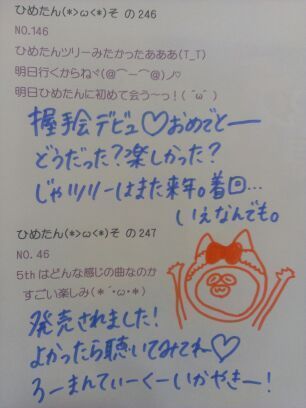 ひめたん(*>ω<*)そ の 246
NO.146
ひめたんツリーみたかったあああ(T_T)
明日行くからねヾ(@⌒ー⌒@)ノ♡
明日ひめたんに初めて会う〜っ！( ´ω` )
握手会デビュ♡おめでとー
どうだった？楽しかった？
じゃツリーはまた来年。着回…
いえなんでも。
ひめたん(*>ω<*)そ の 247
NO.46
5th はどんな感じの曲なのか
すごい楽しみ(＊´･ω･＊)
発売されました！
よかったら聴いてみてね♡
ろーまんてぃーくーいかやきー！